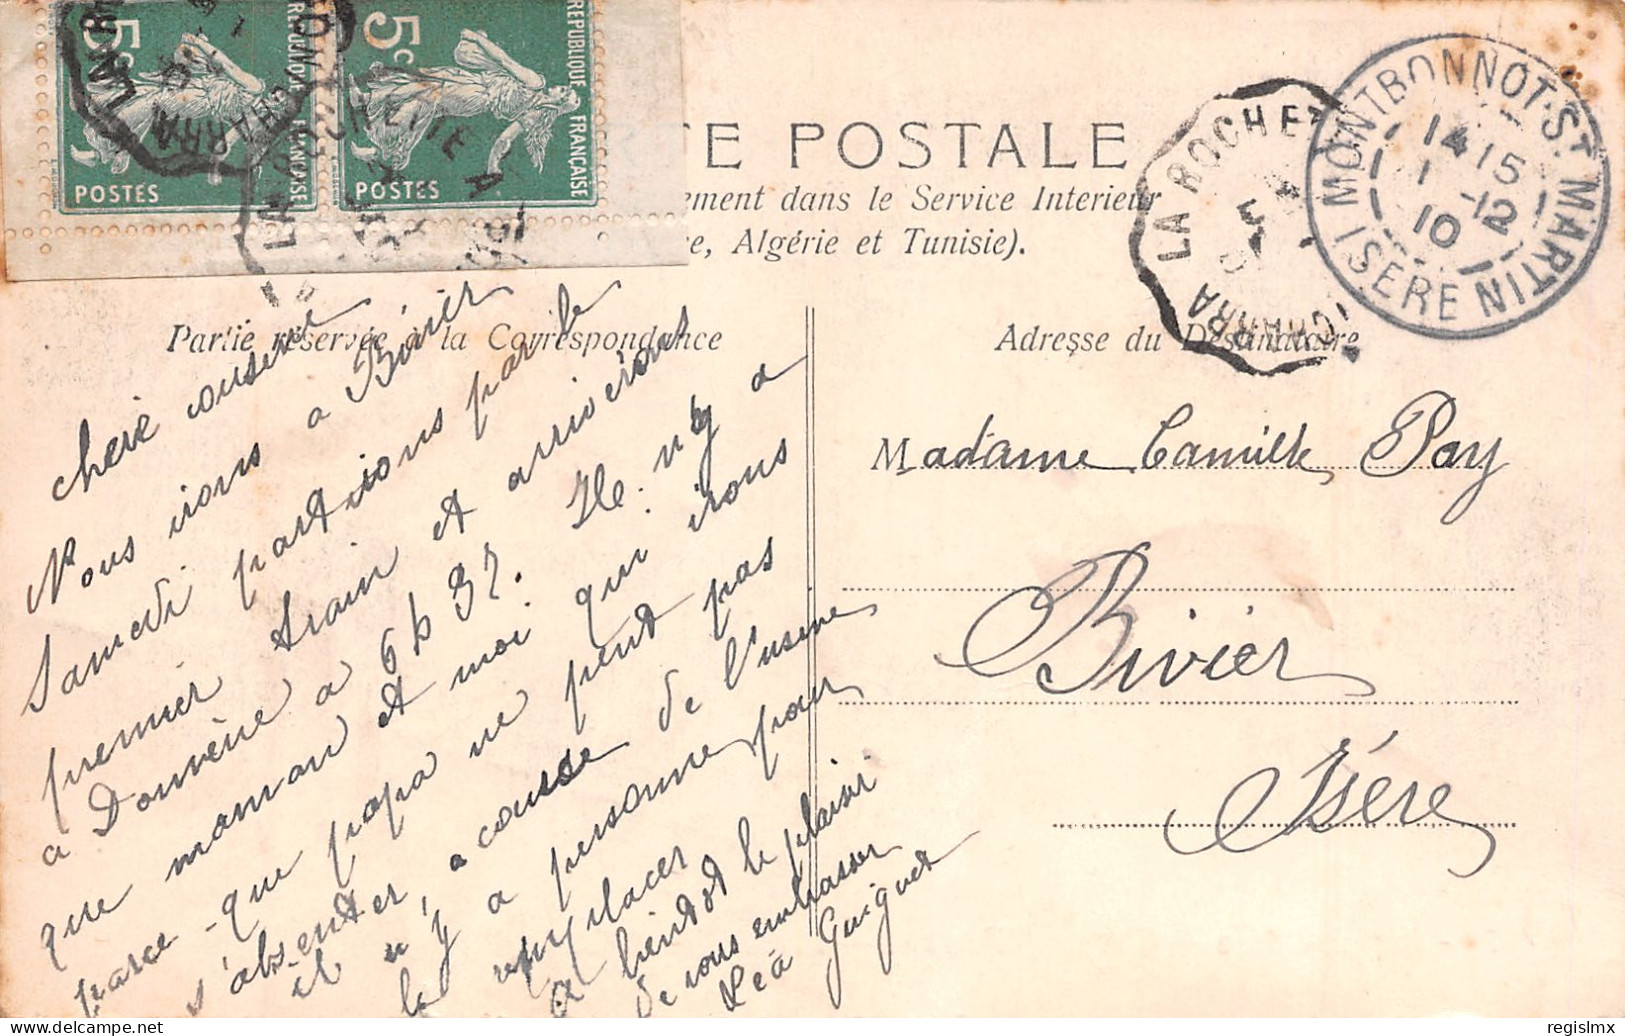 5c
REPUBLIQUE FRANÇAISE
POSTES
5c
REPUBLIQUE FRANÇAISE
POSTES
TE POSTALE
ement dans le Service Interieur
e, Algérie et Tunisie).
LA ROCHE
MONTBONNOT-ST MARTIN
14 15
1 -12
10
ISERE
Partie réservée à la Correspondance
Adresse du Destinataire
chere cousine
Nous irons a Bivier
Samedi partirons par le
premier train et arriverons
a Domène a 6 h 37. Il n'y a
que maman et moi qui irons
parce-que papa ne peut pas
s'absenter, a cause de l'usine
il n'y a personne pour
le remplacer
A bientot le plaisir
de vous embrasser
Léa Guiguet
Madame Camille Pay
Bivier
Isére
www.delcampe.net
regislmx